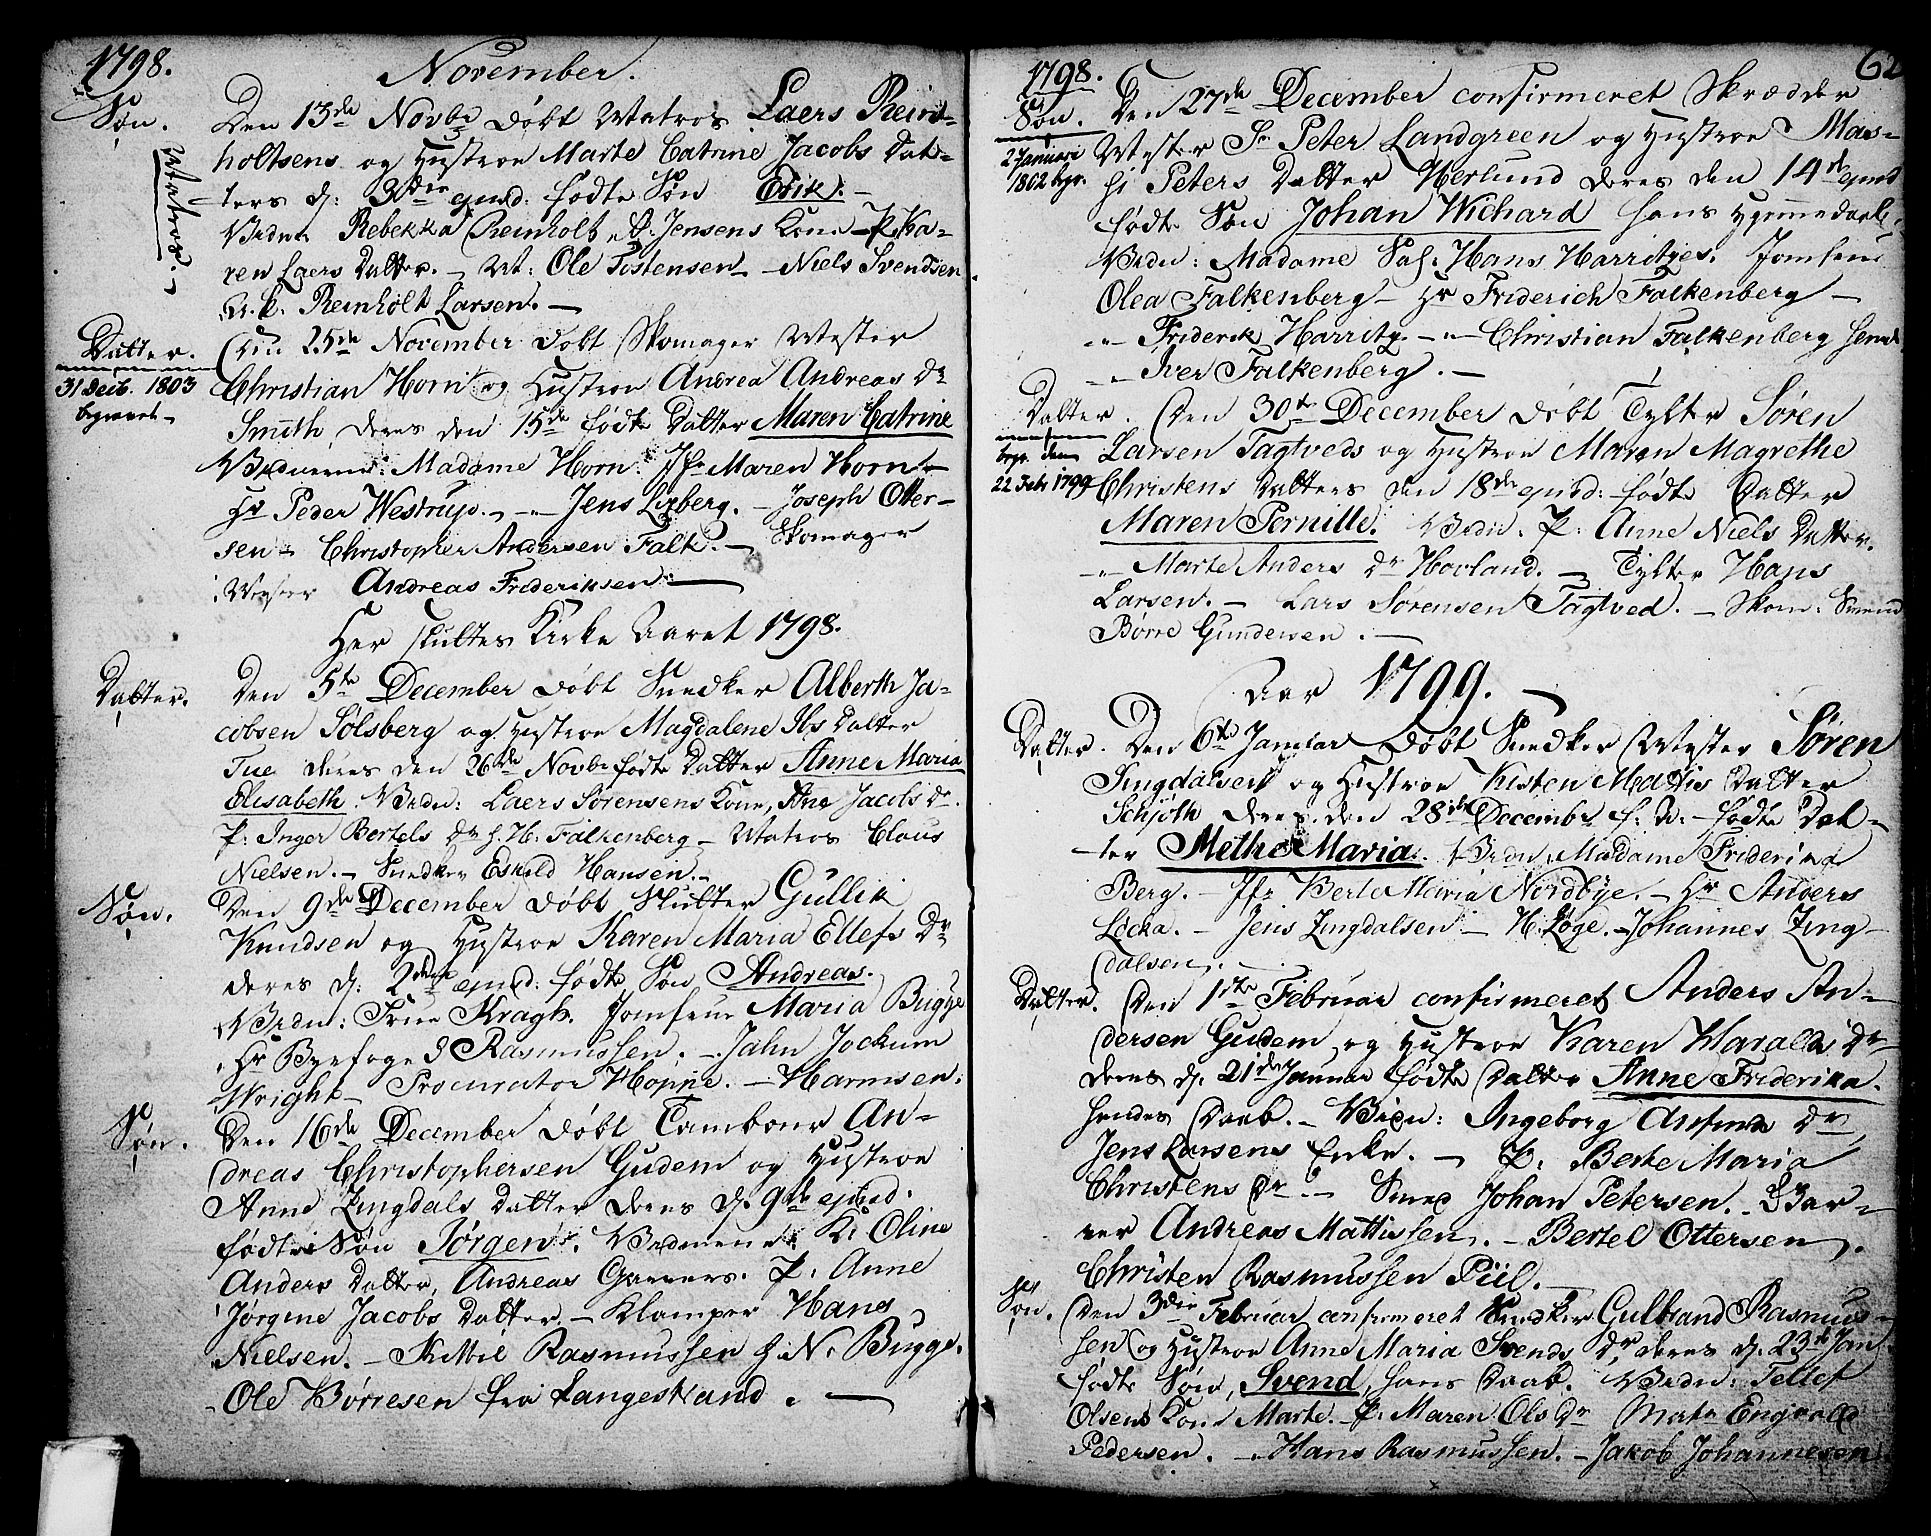 1798.
November.
Søn.
Den 13de Novbr døbt Matros Laers Rein-
Matros.
holtsens og Hustroe Marte Catrine Jacobs Dat-
ters d: 3die ejusd: fødte Søn Erik. -
Bedne: Rebekka Reinholt, A. Jensens Kone - P. Ka-
ren Laers Datter. - M: Ole Tostensen - Niels Svendsen
u. k. Reinholt Larsen. -
Datter.
31 Decb. 1803
begravet -
Den 25de November døbt Skomager Mester
Christian Horn og Hustroe Andrea Andreas Dr
Smith, deres den 15de fødte Datter Maren Catrine
Bednerne: Madame Horn. Jfr Maren Horn -
Hr Peder Westrup. - Jens Lixberg. - Joseph Otter-
sen - Christopher Andersen Falk. - Skomager
Mester Andreas Frederiksen. -
Her sluttes Kirke Aaret 1798.
Datter.
Den 5te December døbt Snedker Alberth Ja-
cobsen Solsberg og Hustroe Magdalene Ibs Datter
Tue deres den 26de Novbr fødte Datter Anne Maria
Elisabeth. Bedne: Laers Sørensens Kone, Ane Jacobs Dr.
P: Inger Bertels Dr h. H: Falkenberg - Matros Claus
Nielsen. - Snedker Eskild Hansen. -
Søn.
Den 9de December døbt Slutter Gullik
Knudsen og Hustroe Karen Maria Ellefs Dr
deres d: 2den ejusd: fødte Søn Andreas.
Bedne: Frue Kragh. Jomfrue Maria Bugge
Hr Byefoged Rasmussen. - Jahn Jockum
Wright - Procurator Høpne. - Harmsen:
Søn.
Den 16de December døbt Tambour An-
dreas Christophersen Gudem og Hustroe
Anne Lingdals Datter deres d. 9de ejusd.
fødte Søn Jørgen. Bednerne: K: Oline
Anders Datter, Andreas Garvers. P. Anne
Jørgine Jacobs Datter. - Klamper Hans
Nielsen. - Kittil Rasmussen h. N. Bugge.
Ole Børresen fra Langestrand. -
62
1798.
Søn.
2 Januari
1802 begr.
Den 27de December confirmeret Skrædder
Mester Sr Peter Landgreen og Hustroe Mas-
si Peters Datter Herlund deres den 14de ejusd
fødte Søn Johan Wichard hans Hjemmedaab.
Bedne: Madame Sal: Hans Harritzes. Jomfrue
Olea Falkenberg - Hr Friderich Falkenberg -
- Friderik Harritz. - Christian Falkenberg
- Iver Falkenberg. -
Datter.
begr. den
22 Febr 1799
Den 30te December døbt Tylter Søren
Larsen Tagtveds og Hustroe Maren Magrethe
Christens Datters den 18de ejusd: fødte Datter
Maren Pernille. Bedne. P: Anne Niels Datter.
- Marte Anders Dr Hovland. - Tylter Hans
Larsen. - Lars Sørensen Tagtved. - Skom: Svend
Børre Gundersen. -
Aar 1799. -
Datter.
Den 6te Januar døbt Snedker Mester Søren
Lingdalsen og Hustroe Kisten Mattis Datter
Schjøth deres den 28de Decembr f: A: fødte Dat-
ter Methe Maria. Bedne: Madame Friderica
Berg. - Jfr Berte Maria Nordbye. - Hr Anders
Locka. - Jens Lingdalsen - H. Løge. - Johannes Ling-
dalsen. -
Datter.
Den 1ste Februar confirmeret Anders An-
dersen Gudem og Hustroe Karen Haralds Dr
deres d. 21de Januar fødte Datter Anne Friderika.
hendes Daab. - Bedne: Ingeborg Amunds Dr
Jens Larsens Enke. - P. Berte Maria
Christens Dr. - Smed Johan Petersen. - Gar-
ver Andreas Mattissen. - Bertel Ottersen.
Christen Rasmussen Piil. -
Søn.
Den 3die Februar confirmeret Snedker Gulbrand Rasmus-
sen og Hustroe Anne Maria Svends Dr, deres d. 23de Jan:
fødte Søn, Svend, hans Daab. Bedne: Tellef
Olsens Kone Marte. - P: Maren Ols Dr Matr Engvold
Pedersen. - Hans Rasmussen. - Jakob Johannesen